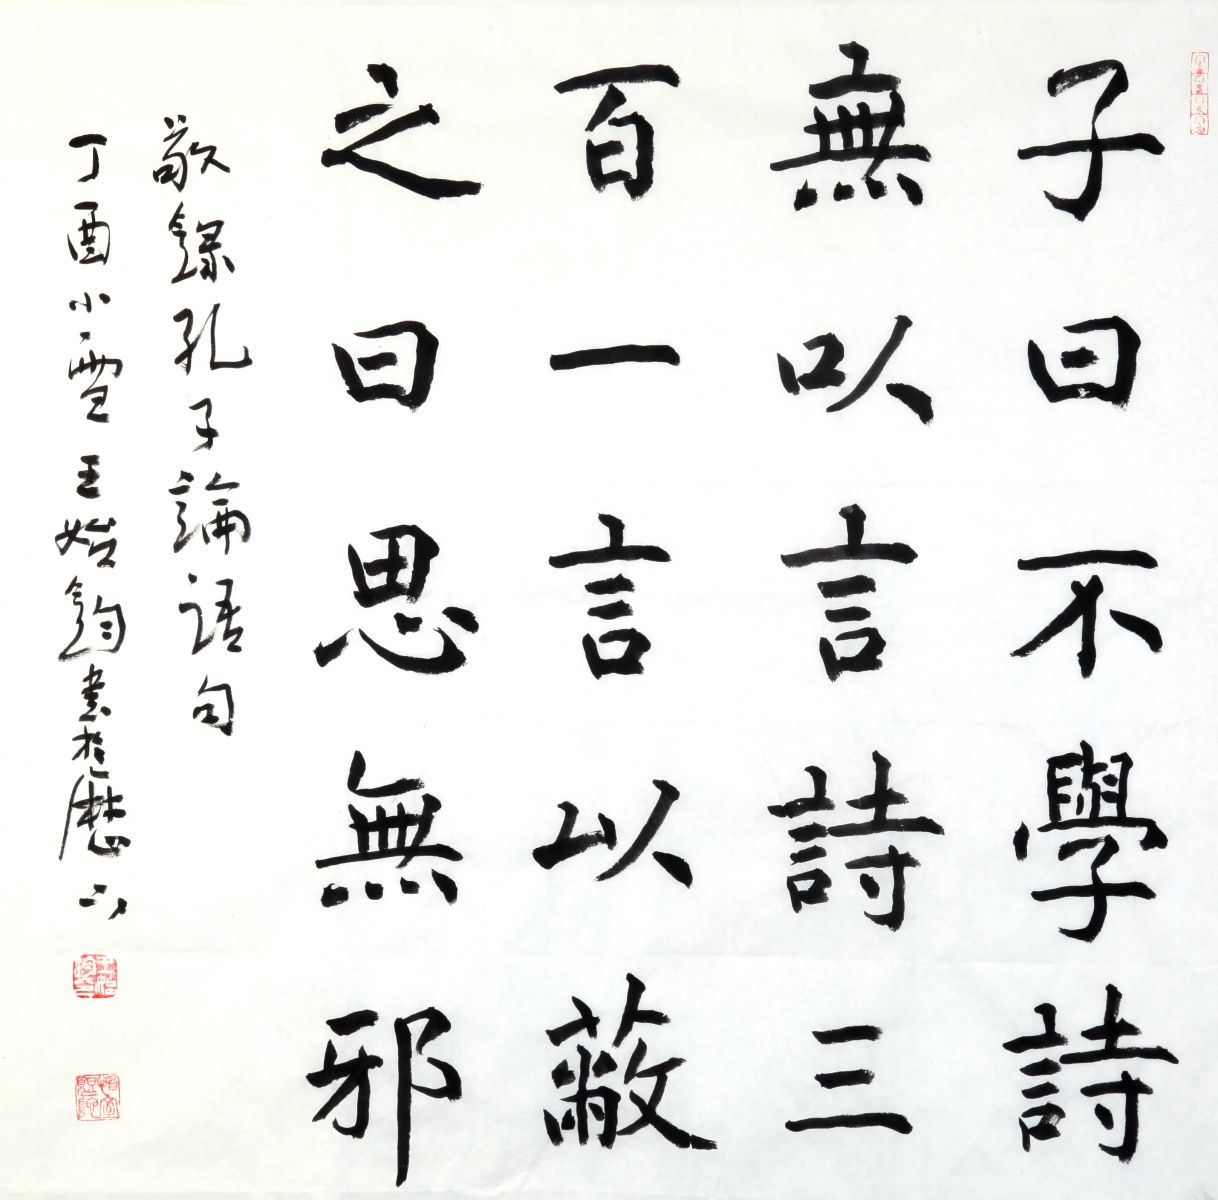 子曰不學詩
無以言詩三
百一言以蔽
之曰思無邪
敬錄孔子論語句
丁酉小雪王始鈞書於歷下